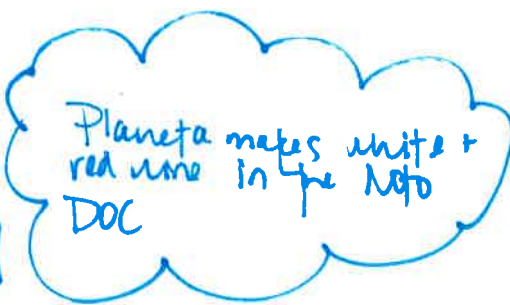 Planeta makes white +
red wine in the Noto
DOC